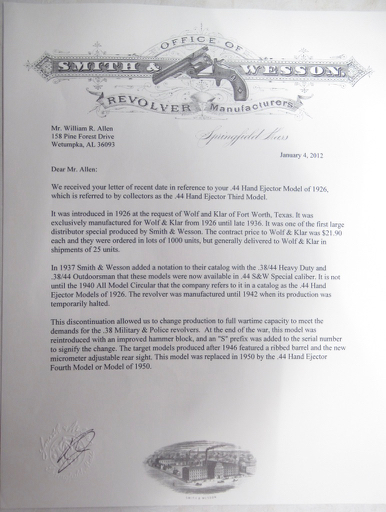 OFFICE OF
SMITH & WESSON.
REVOLVER Manufacturers
Springfield Mass
Mr. William R. Allen
158 Pine Forest Drive
Wetumpka, AL 36093
January 4, 2012
Dear Mr. Allen:
We received your letter of recent date in reference to your .44 Hand Ejector Model of 1926,
which is referred to by collectors as the .44 Hand Ejector Third Model.
It was introduced in 1926 at the request of Wolf and Klar of Fort Worth, Texas. It was
exclusively manufactured for Wolf & Klar from 1926 until late 1936. It was one of the first large
distributor special produced by Smith & Wesson. The contract price to Wolf & Klar was $21.90
each and they were ordered in lots of 1000 units, but generally delivered to Wolf & Klar in
shipments of 25 units.
In 1937 Smith & Wesson added a notation to their catalog with the .38/44 Heavy Duty and
.38/44 Outdoorsman that these models were now available in .44 S&W Special caliber. It is not
until the 1940 All Model Circular that the company refers to it in a catalog as the .44 Hand
Ejector Models of 1926. The revolver was manufactured until 1942 when its production was
temporarily halted.
This discontinuation allowed us to change production to full wartime capacity to meet the
demands for the .38 Military & Police revolvers. At the end of the war, this model was
reintroduced with an improved hammer block, and an "S" prefix was added to the serial number
to signify the change. The target models produced after 1946 featured a ribbed barrel and the new
micrometer adjustable rear sight. This model was replaced in 1950 by the .44 Hand Ejector
Fourth Model or Model of 1950.